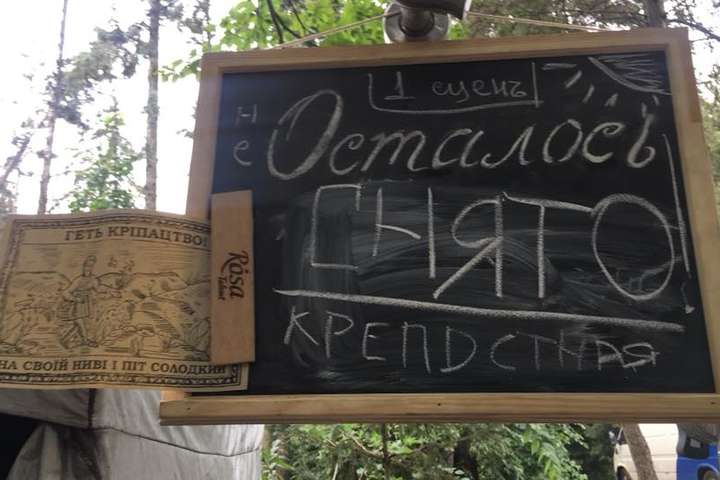 1 сценъ
не
Осталось
СНЯТО!
КРЕПОСТНАЯ
ГЕТЬ КРІПАЦТВО!
НА СВОЇЙ НИВІ І ПІТ СОЛОДКИЙ
Rosa
Talent